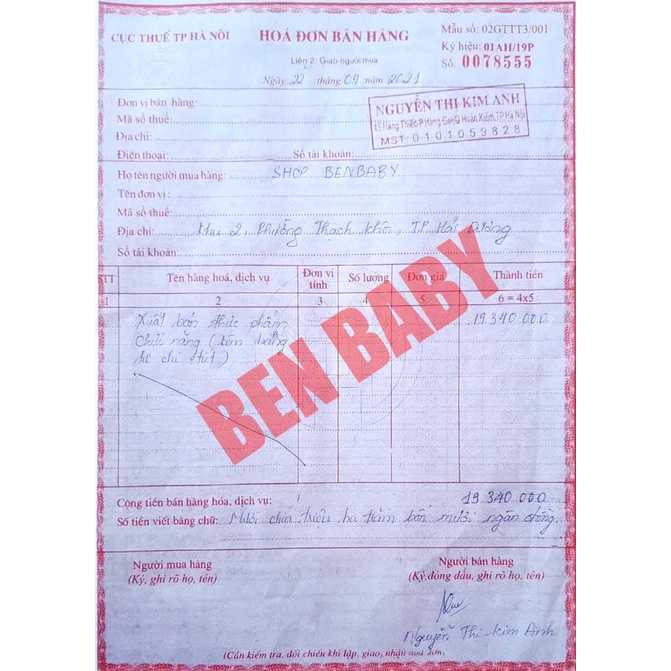 CỤC THUẾ TP HÀ NỘI
HOÁ ĐƠN BÁN HÀNG
Mẫu số: 02GTTT3/001
Liên 2: Giao người mua
Ký hiệu: 01AH/19P
Ngày 22 tháng 04 năm 2021
Số: 0078555
Đơn vị bán hàng:
NGUYỄN THỊ KIM ANH
Mã số thuế:
45 Hàng Thiếc P. Hàng Gai Q Hoàn Kiếm, TP Hà Nội
Địa chỉ:
MST: 0101059828
Điện thoại: Số tài khoản:
Họ tên người mua hàng: SHOP BENBABY
Tên đơn vị:
Mã số thuế:
Địa chỉ: Khu 2, Phường Thạch Khôi, TP Hải Dương
Số tài khoản:
STT Tên hàng hoá, dịch vụ Đơn vị tính Số lượng Đơn giá Thành tiền
1 2 3 4 5 6 = 4x5
Xuất bán thực phẩm 19 340 000
chức năng (kèm bảng
kê chi tiết)
BEN BABY
Cộng tiền bán hàng hóa, dịch vụ: 19 340 000
Số tiền viết bằng chữ: Mười chín triệu ba trăm bốn mươi ngàn đồng
Người mua hàng Người bán hàng
(Ký, ghi rõ họ, tên) (Ký, đóng dấu, ghi rõ họ, tên)
Nguyễn Thị Kim Anh
(Cần kiểm tra, đối chiếu khi lập, giao, nhận hóa đơn)